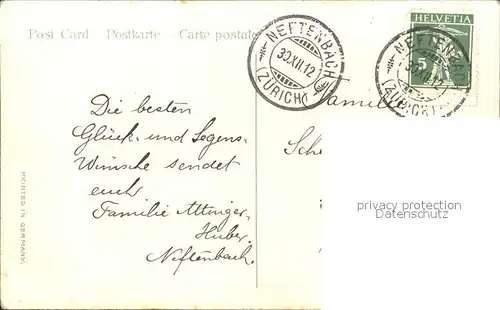 Post Card Postkarte Carte postale
HELVETIA
5
NEFTENBACH
30.XII.12
(ZÜRICH)
NEFTENBACH
30.XII.12
(ZÜRICH)
Die besten
Glück- und Segens-
Wünsche sendet
euch
Familie Attinger-
Huber.
Neftenbach.
amil
Sch
privacy protection
Datenschutz
PRINTED IN GERMANY.